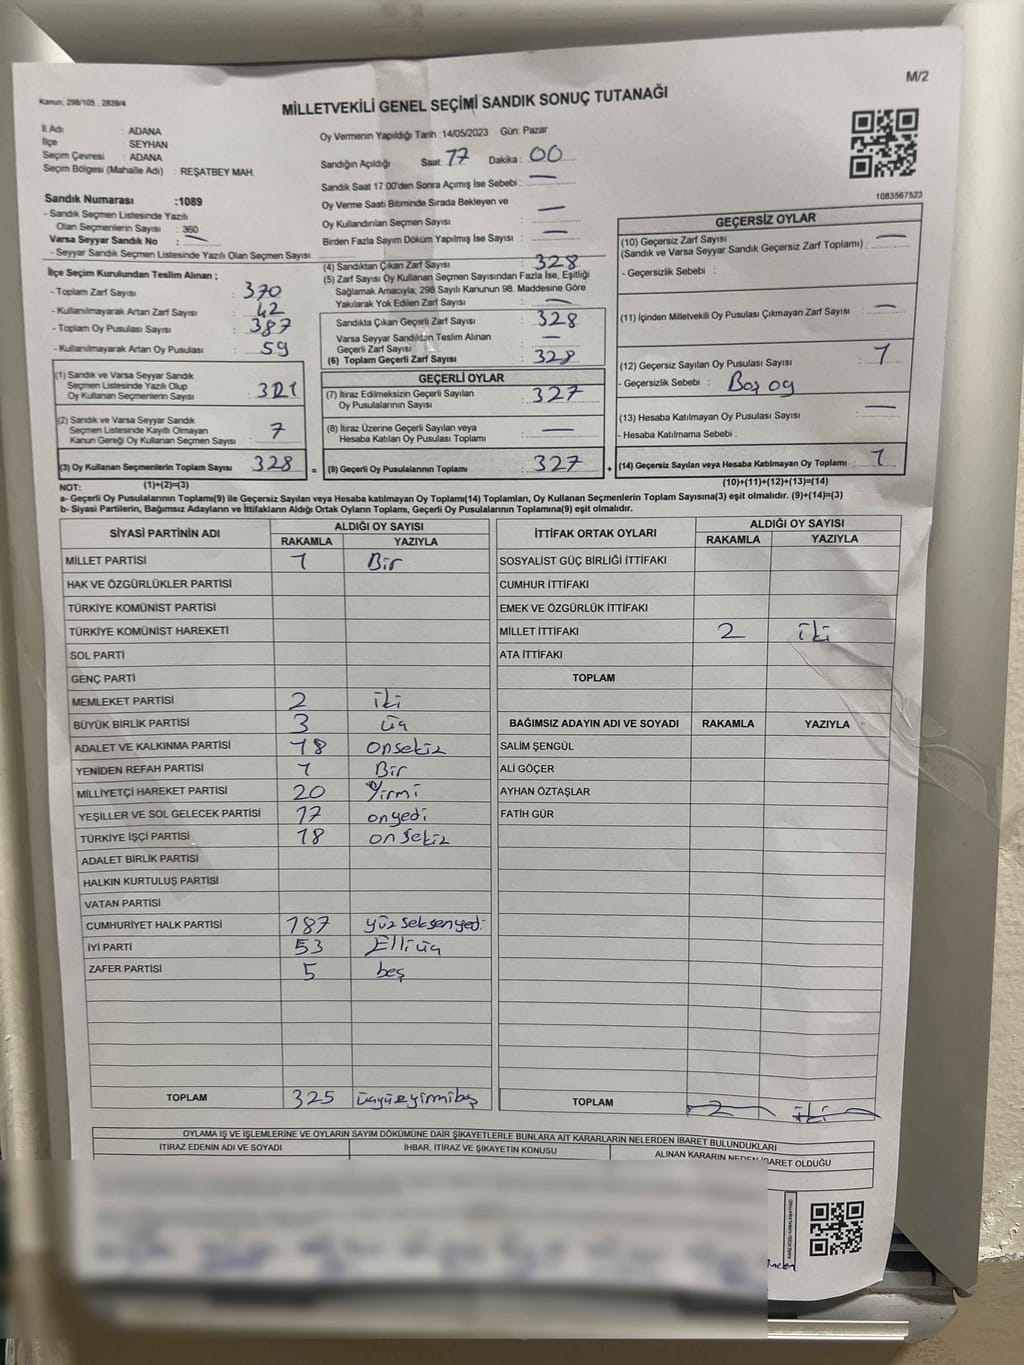 M/2
Kanun: 298/105 , 2839/4
MİLLETVEKİLİ GENEL SEÇİMİ SANDIK SONUÇ TUTANAĞI
İl Adı : ADANA
İlçe : SEYHAN
Seçim Çevresi : ADANA
Seçim Bölgesi (Mahalle Adı) : REŞATBEY MAH.
Sandık Numarası :1089
- Sandık Seçmen Listesinde Yazılı
Olan Seçmenlerin Sayısı : 360
Varsa Seyyar Sandık No : —
- Seyyar Sandık Seçmen Listesinde Yazılı Olan Seçmen Sayısı:
İlçe Seçim Kurulundan Teslim Alınan ;
- Toplam Zarf Sayısı : 370
- Kullanılmayarak Artan Zarf Sayısı : 42
- Toplam Oy Pusulası Sayısı : 387
- Kullanılmayarak Artan Oy Pusulası : 59
(1) Sandık ve Varsa Seyyar Sandık
Seçmen Listesinde Yazılı Olup
Oy Kullanan Seçmenlerin Sayısı : 321
(2) Sandık ve Varsa Seyyar Sandık
Seçmen Listesinde Kayıtlı Olmayan
Kanun Gereği Oy Kullanan Seçmen Sayısı : 7
(3) Oy Kullanan Seçmenlerin Toplam Sayısı : 328
Oy Vermenin Yapıldığı Tarih :14/05/2023 Gün: Pazar
Sandığın Açıldığı Saat: 17 Dakika : 00
Sandık Saat 17:00'den Sonra Açılmış İse Sebebi : —
Oy Verme Saati Bitiminde Sırada Bekleyen ve
Oy Kullandırılan Seçmen Sayısı : —
Birden Fazla Sayım Döküm Yapılmış İse Sayısı : —
(4) Sandıktan Çıkan Zarf Sayısı : 328
(5) Zarf Sayısı Oy Kullanan Seçmen Sayısından Fazla İse, Eşitliği
Sağlamak Amacıyla; 298 Sayılı Kanunun 98. Maddesine Göre
Yakılarak Yok Edilen Zarf Sayısı : —
Sandıkta Çıkan Geçerli Zarf Sayısı : 328
Varsa Seyyar Sandıktan Teslim Alınan
Geçerli Zarf Sayısı : —
(6) Toplam Geçerli Zarf Sayısı : 328
GEÇERLİ OYLAR
(7) İtiraz Edilmeksizin Geçerli Sayılan
Oy Pusulalarının Sayısı : 327
(8) İtiraz Üzerine Geçerli Sayılan veya
Hesaba Katılan Oy Pusulası Toplamı : —
= (9) Geçerli Oy Pusulalarının Toplamı : 327
1083567523
GEÇERSİZ OYLAR
(10) Geçersiz Zarf Sayısı : —
(Sandık ve Varsa Seyyar Sandık Geçersiz Zarf Toplamı)
- Geçersizlik Sebebi :
(11) İçinden Milletvekili Oy Pusulası Çıkmayan Zarf Sayısı : —
(12) Geçersiz Sayılan Oy Pusulası Sayısı : 1
- Geçersizlik Sebebi : Boş oy
(13) Hesaba Katılmayan Oy Pusulası Sayısı : —
- Hesaba Katılmama Sebebi :
+ (14) Geçersiz Sayılan veya Hesaba Katılmayan Oy Toplamı : 1
NOT: (1)+(2)=(3)
(10)+(11)+(12)+(13)=(14)
a- Geçerli Oy Pusulalarının Toplamı(9) ile Geçersiz Sayılan veya Hesaba katılmayan Oy Toplamı(14) Toplamları, Oy Kullanan Seçmenlerin Toplam Sayısına(3) eşit olmalıdır. (9)+(14)=(3)
b- Siyasi Partilerin, Bağımsız Adayların ve İttifakların Aldığı Ortak Oyların Toplamı, Geçerli Oy Pusulalarının Toplamına(9) eşit olmalıdır.
SİYASİ PARTİNİN ADI ALDIĞI OY SAYISI
RAKAMLA YAZIYLA
MİLLET PARTİSİ 1 Bir
HAK VE ÖZGÜRLÜKLER PARTİSİ
TÜRKİYE KOMÜNİST PARTİSİ
TÜRKİYE KOMÜNİST HAREKETİ
SOL PARTİ
GENÇ PARTİ
MEMLEKET PARTİSİ 2 iki
BÜYÜK BİRLİK PARTİSİ 3 üç
ADALET VE KALKINMA PARTİSİ 18 onsekiz
YENİDEN REFAH PARTİSİ 1 Bir
MİLLİYETÇİ HAREKET PARTİSİ 20 Yirmi
YEŞİLLER VE SOL GELECEK PARTİSİ 17 onyedi
TÜRKİYE İŞÇİ PARTİSİ 18 onsekiz
ADALET BİRLİK PARTİSİ
HALKIN KURTULUŞ PARTİSİ
VATAN PARTİSİ
CUMHURİYET HALK PARTİSİ 187 yüzseksenyedi
İYİ PARTİ 53 Elliüç
ZAFER PARTİSİ 5 beş
TOPLAM 325 üçyüzyirmibeş
İTTİFAK ORTAK OYLARI ALDIĞI OY SAYISI
RAKAMLA YAZIYLA
SOSYALİST GÜÇ BİRLİĞİ İTTİFAKI
CUMHUR İTTİFAKI
EMEK VE ÖZGÜRLÜK İTTİFAKI
MİLLET İTTİFAKI 2 iki
ATA İTTİFAKI
TOPLAM
BAĞIMSIZ ADAYIN ADI VE SOYADI RAKAMLA YAZIYLA
SALİM ŞENGÜL
ALİ GÖÇER
AYHAN ÖZTAŞLAR
FATİH GÜR
TOPLAM 2 iki
OYLAMA İŞ VE İŞLEMLERİNE VE OYLARIN SAYIM DÖKÜMÜNE DAİR ŞİKAYETLERLE BUNLARA AİT KARARLARIN NELERDEN İBARET BULUNDUKLARI
İTİRAZ EDENİN ADI VE SOYADI İHBAR, İTİRAZ VE ŞİKAYETİN KONUSU ALINAN KARARIN NEDEN İBARET OLDUĞU